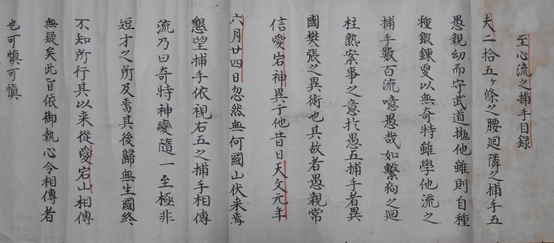 至心流之捕手目録
夫二拾五ヶ條之腰廻隣之捕手五
愚親幼而守武道拋他雖則自種
種鍛錬更以無奇特雖學他流之
捕手數百流噫愚哉如繫狗之廻
柱熟案事之意於愚五捕手者異
國樊張之異術也其故者愚親常
信愛宕神異于他昔日天文元年
六月廿四日忽然無何國山伏来焉
懇望捕手依視石五之捕手相傳
流乃曰奇特神變隨一至極非
短才之所及焉其後歸無生國終
不知所行具以来從愛宕山相傳
無疑矣此旨依御執心令相傳者
也可慎可慎